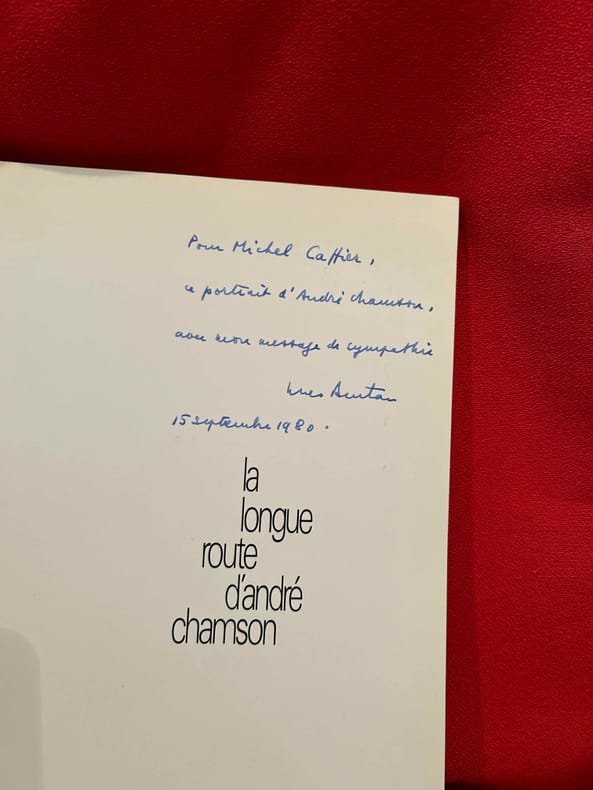 Pour Michel Caffier,
ce portrait d'André Chamson,
avec mon message de sympathie
15 septembre 1980.
la
longue
route
d'andré
chamson